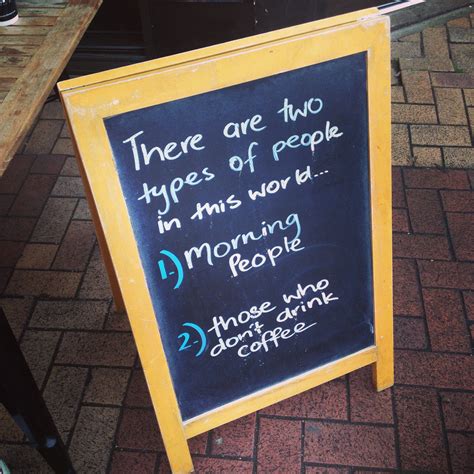 There are two
types of people
in this world...
1.) Morning
People
2.) those who
don't drink
coffee